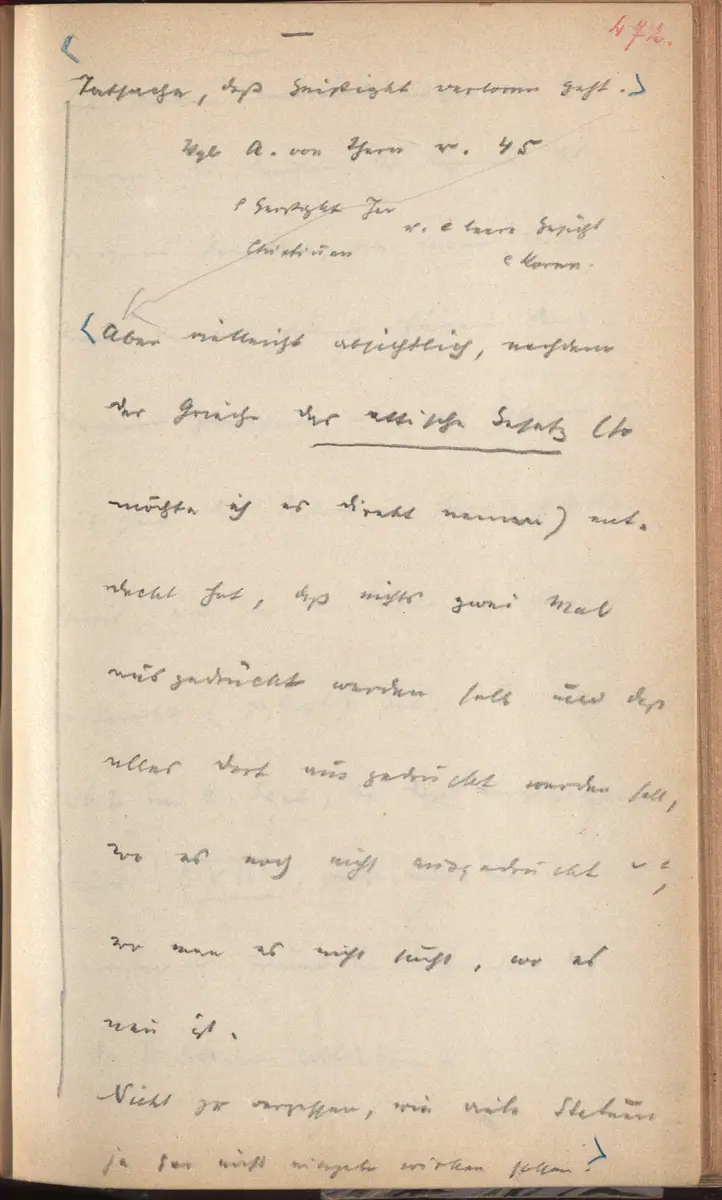 472.
Tatsache, daß Geistigkt verloren geht.
Vgl A. von Thera u. 45
e Geistigkt Jer
u. e leere Gesicht
e Koren.
Aber vielleicht absichtlich, nachdem
der Grieche das attische Gesetz (so
möchte ich es direkt nennen) ent-
deckt hat, daß nichts zwei Mal
ausgedrückt werden soll und daß
alles dort ausgedrückt werden soll,
wo es noch nicht ausgedrückt
wo man es nicht sucht, wo es
neu ist.
Nicht zu vergessen, wie viele Statuen
ja gar nicht wirken sollen!